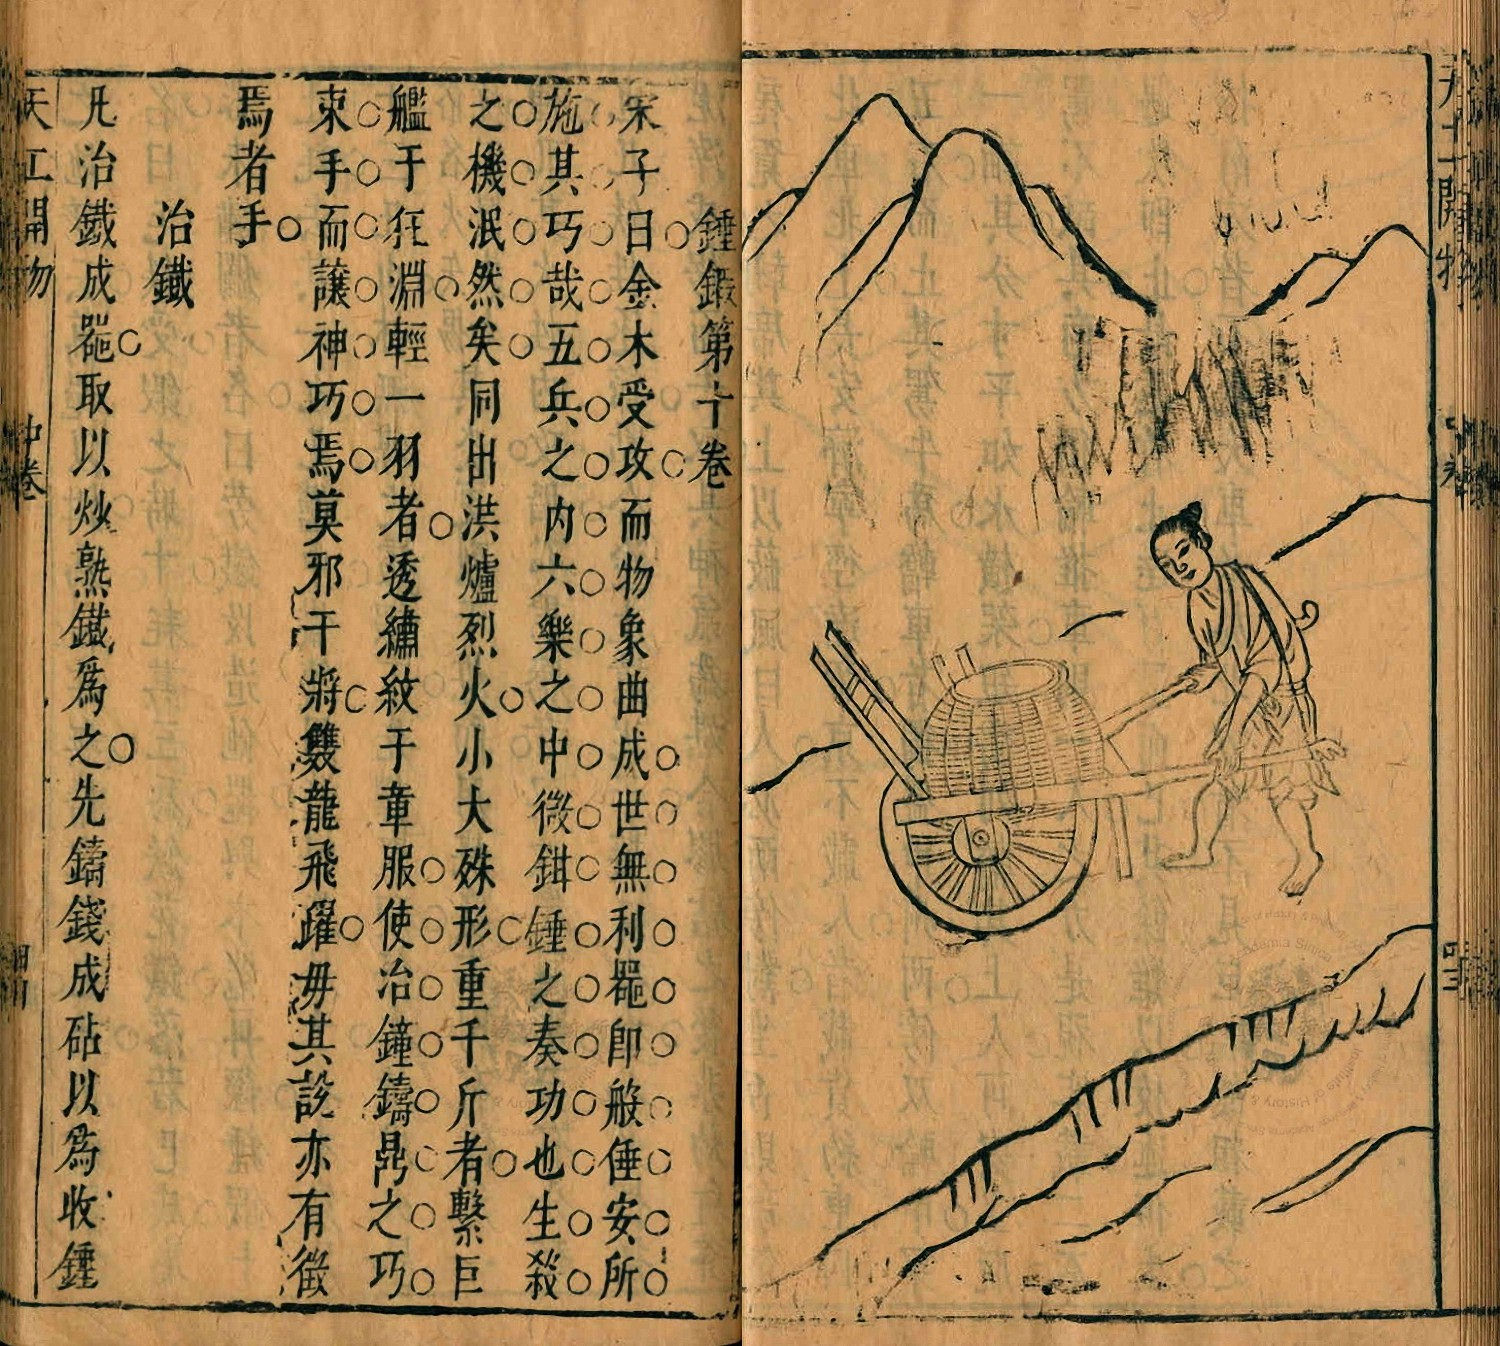 天工開物
錘鍛第十卷
宋子曰金木受攻而物象曲成世無利噐卽般倕安所
施其巧哉五兵之内六樂之中微鉗錘之奏功也生殺
之機泯然矣同出洪爐烈火小大殊形重千斤者繫巨
艦于狂淵輕一羽者透繡紋于章服使冶鐘鑄鼎之巧
束手而讓神巧焉莫邪干將雙龍飛躍毋其說亦有徵
焉者手
治鐵
凡治鐵成噐取以炒熟鐵爲之先鑄鐵成砧以爲收錘
天工開物
中卷